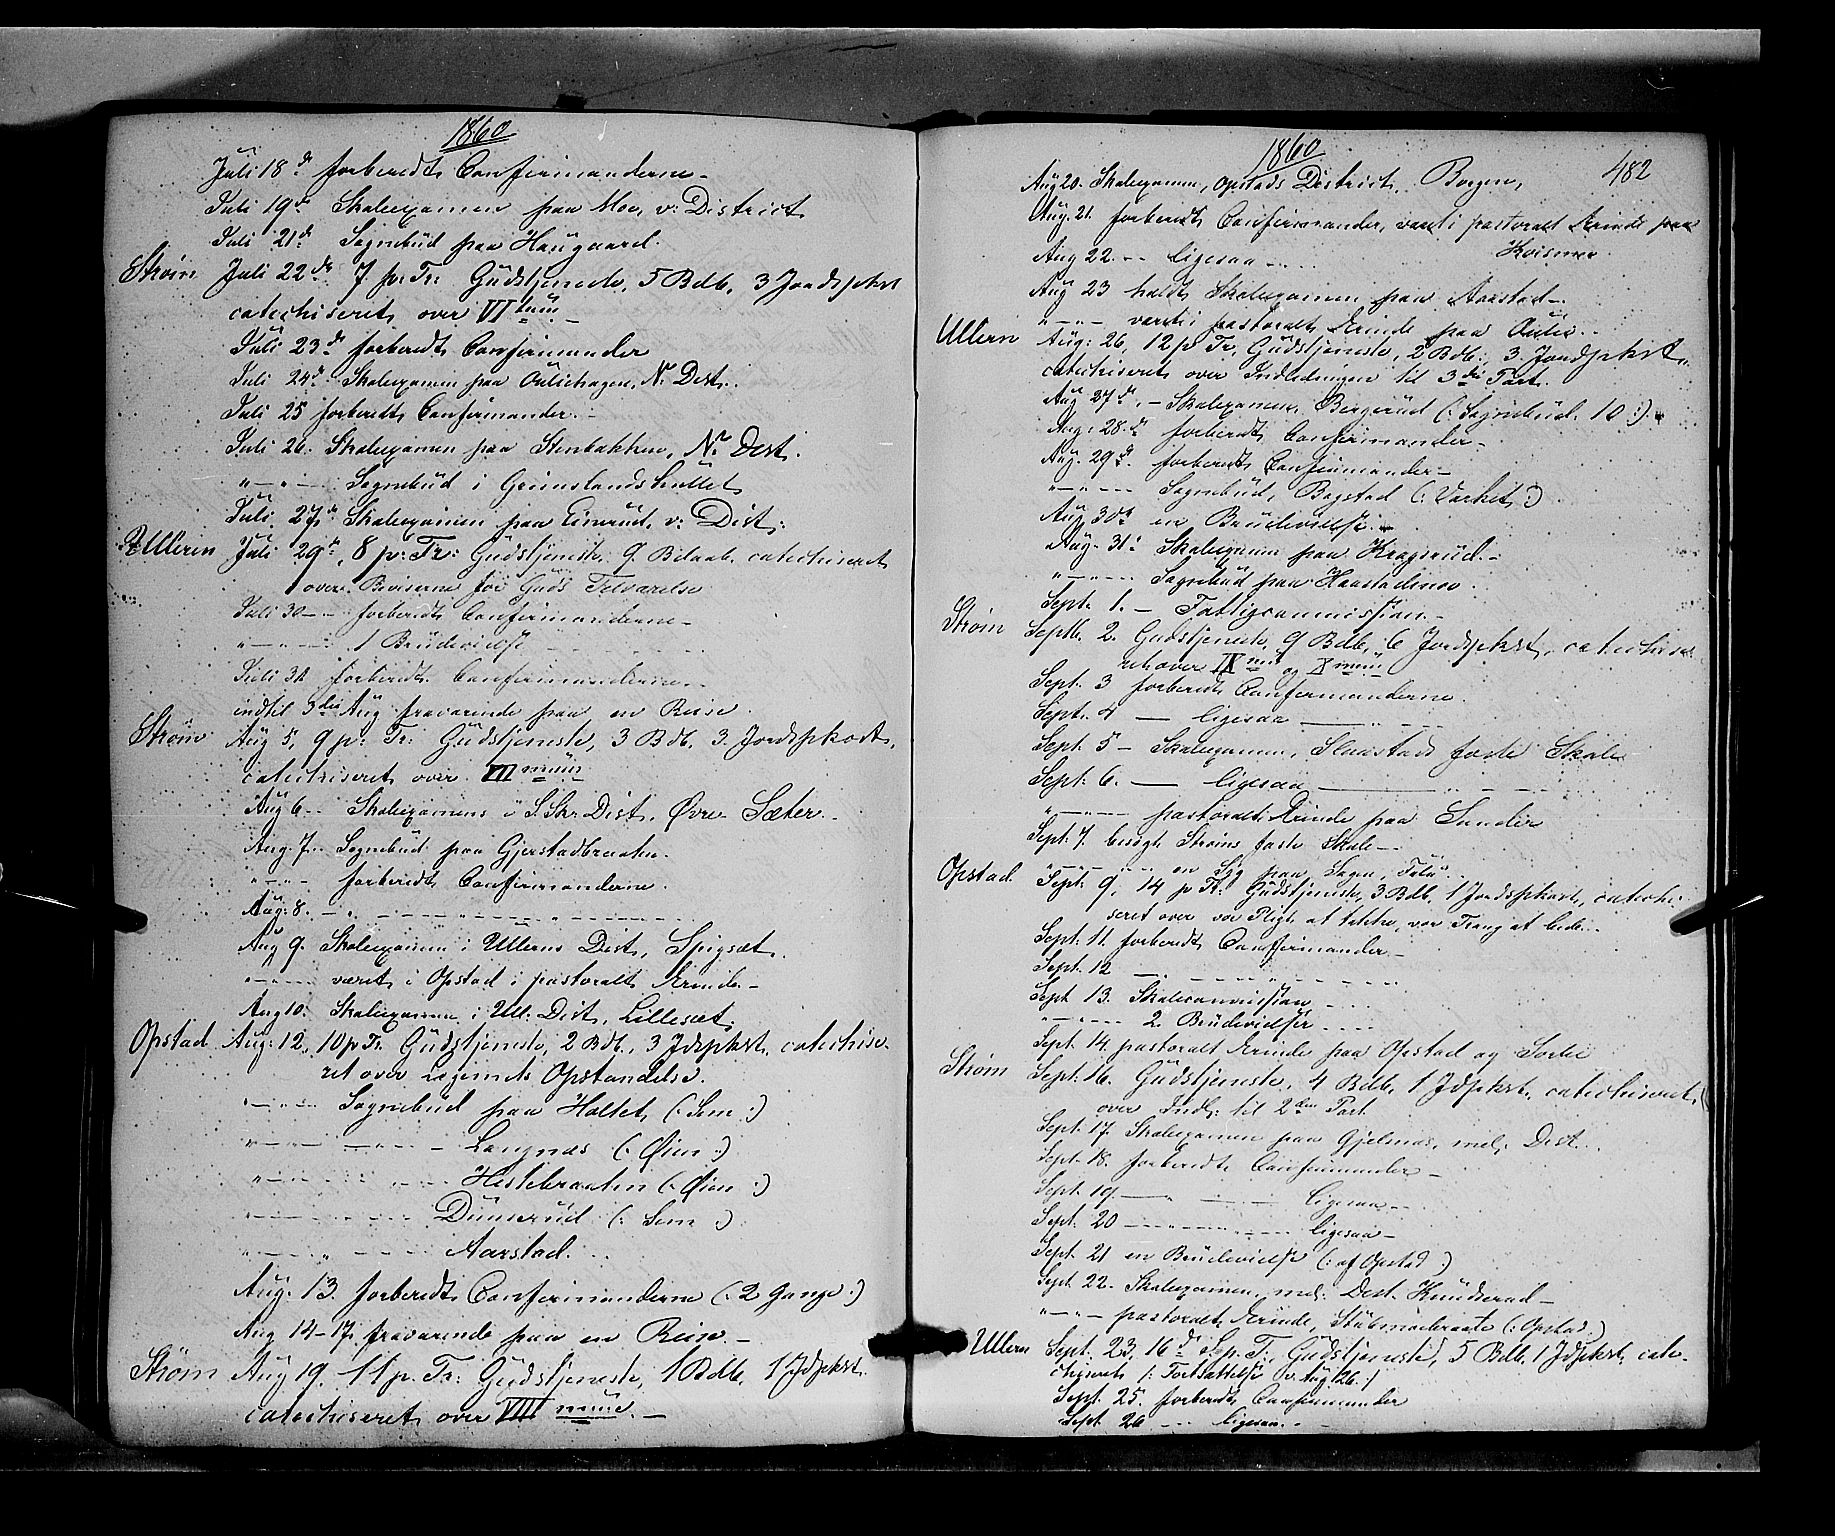 1860
Juli 18de forberedt Confirmanderne -
Juli 19de Skoleexamen paa Moe, v: District
Juli 21de Sognebud paa Haugaard.
Strøm Juli 22de 7 p: Tr: Gudstjeneste, 5 Bdb, 3 Jordspkst
catechiseret over VI tum -
Juli 23de forberedt Confirmander
Juli 24de Skoleexamen paa Ouliehagen, N: Dist.
Juli 25 forberedt Confirmander. -
Juli 26. Skoleexamen paa Stenbakken, N: Dist.
" - " - Sognebud i Grimslandshullet
Juli 27de Skoleexamen paa Eivrud, v: Dist:
Ullerin Juli 29de, 8 p: Tr: Gudstjeneste, 9 Bdaab, catechiseret
over Beviserne for Guds Tilværelse
Juli 30 - - forberedt Confirmanderne -
" - " - - 1 Brudevielse
Juli 31 forberedt Confirmanderne -
indtil 3die Aug fraværende paa en Reise.
Strøm Aug 5, 9 p: Tr: Gudstjeneste, 3 Bdb, 3. Jordspkast,
catechiseret over VII mum
Aug 6 - Skoleexamens i S. Skr: Dist, Øvre Sæter -
Aug. 7 - Sognebud paa Gjerstadbraaten.
" - " - forberedt Confirmanderne.
Aug: 8. - " - - - - - -
Aug 9. Skoleexamen i Ullerns Dist, Spigsæt.
" - - " - været i Opstad i pastoralt Ærinde -
Aug 10. Skoleexamen i Ull: Dist, Lillesæt.
Opstad Aug: 12, 10 p Tr. Gudstjeneste, 2 Bdb, 3 Jdspkst, catechise-
ret over Legemets Opstandelse.
" - - " - Sognebud paa Holtet (: Sem :)
" - - " - - " - - Langnæs (: Øien :)
" - - " - - " - - Hestebraaten (: Øien :)
" - - " - - " - - Dunserud (: Sem :)
" - - " - - - Aarstad.
Aug. 13. forberedt Confirmanderne (: 2 Gange :)
Aug 14-17, fraværende paa en Reise. -
Strøm Aug 19. 11 p. Tr: Gudstjeneste, 1 Bdb, 1 Jdpkst
catechiseret over VIII mum. -
1860
482
Aug 20. Skoleexamen, Opstads District, Borgen,
Aug. 21. forberedt Confirmander, været i pastoralt Ærinde paa
Kvismoe.
Aug 22. - - ligesaa - - -
Aug 23 holdt Skoleexamen paa Aarstad -
" - - " - været i pastoralt Ærinde paa Oulie. -
Ullern Aug: 26, 12 p Tr, Gudstjeneste, 2 Bdb: 3. Jordpkst,
catechiseret over Indledningen til 3die Part.
Aug 27de, - Skoleexamen, Bergerud (: Sognebud 10 :).
Aug: 28de forberedt Confirmander -
Aug. 29de. forberedt Confirmander -
" - " - - - Sognebud, Bogstad (: Varket :)
Aug 30de en Brudevielse. -
Aug. 31: Skoleexamen paa Kragsrud. -
" - - " - - Sognebud paa Haastadmoe.
Sept. 1. - Fattigcommission. -
Strøm Septb. 2. Gudstjeneste, 9 Bdb, 6 Jordspkst, catechise-
ret over IX num og X mum
Sept. 3 forberedt Confirmanderne
Sept. 4 - ligesaa - - -
Sept. 5 - Skoleexamen, Slaastads faste Skole
Sept: 6. - ligesaa - - -
" - - " - pastoralt Ærinde paa Sander
Sept. 7. besøgt Strøms faste Skole -
" - " - - " - en Lig paa Sagen,
Opstad Sept: 9, 14 p Tr: Gudstjeneste, 3 Bdb, 1 Jordspkast, catechi-
seret over vor Pligt at takke, vor Trang at bede -
Sept. 11. forberedt Confirmander -
Sept. 12 - - - - - -
Sept 13. Skolecommission - - -
" - - " - - 2. Brudevielser - - -
Sept. 14. pastoralt Ærinde paa Opstad og Sorlie
Strøm Sept: 16. Gudstjeneste, 4 Bdb, 1 Jdpkst, catechiseret,
over Indl: til 2den Part
Sept. 17. Skoleexamen paa Gjelnæs, mel; Dist.
Sept. 18. forberedt Confirmander -
Sept. 19. - " - - ligesaa -
Sept. 20 - - " - - ligesaa -
Sept. 21 en Brudevielse (: af Opstad :)
Sept. 22. Skoleexamen, mel; Dist. Knudserud -
" - - " - pastoralt Ærinde, Stubmoebraate (: Opstad :)
Ullern Sept. 23, 16de S. p. Tr: Gudstjeneste, 5 Bdb, 1 Jdpkst, cate-
chiseret (: Fortsættelse v. Aug 26 :)
Sept. 25. forberedt Confirmander
Sept. 26 - - ligesaa. -